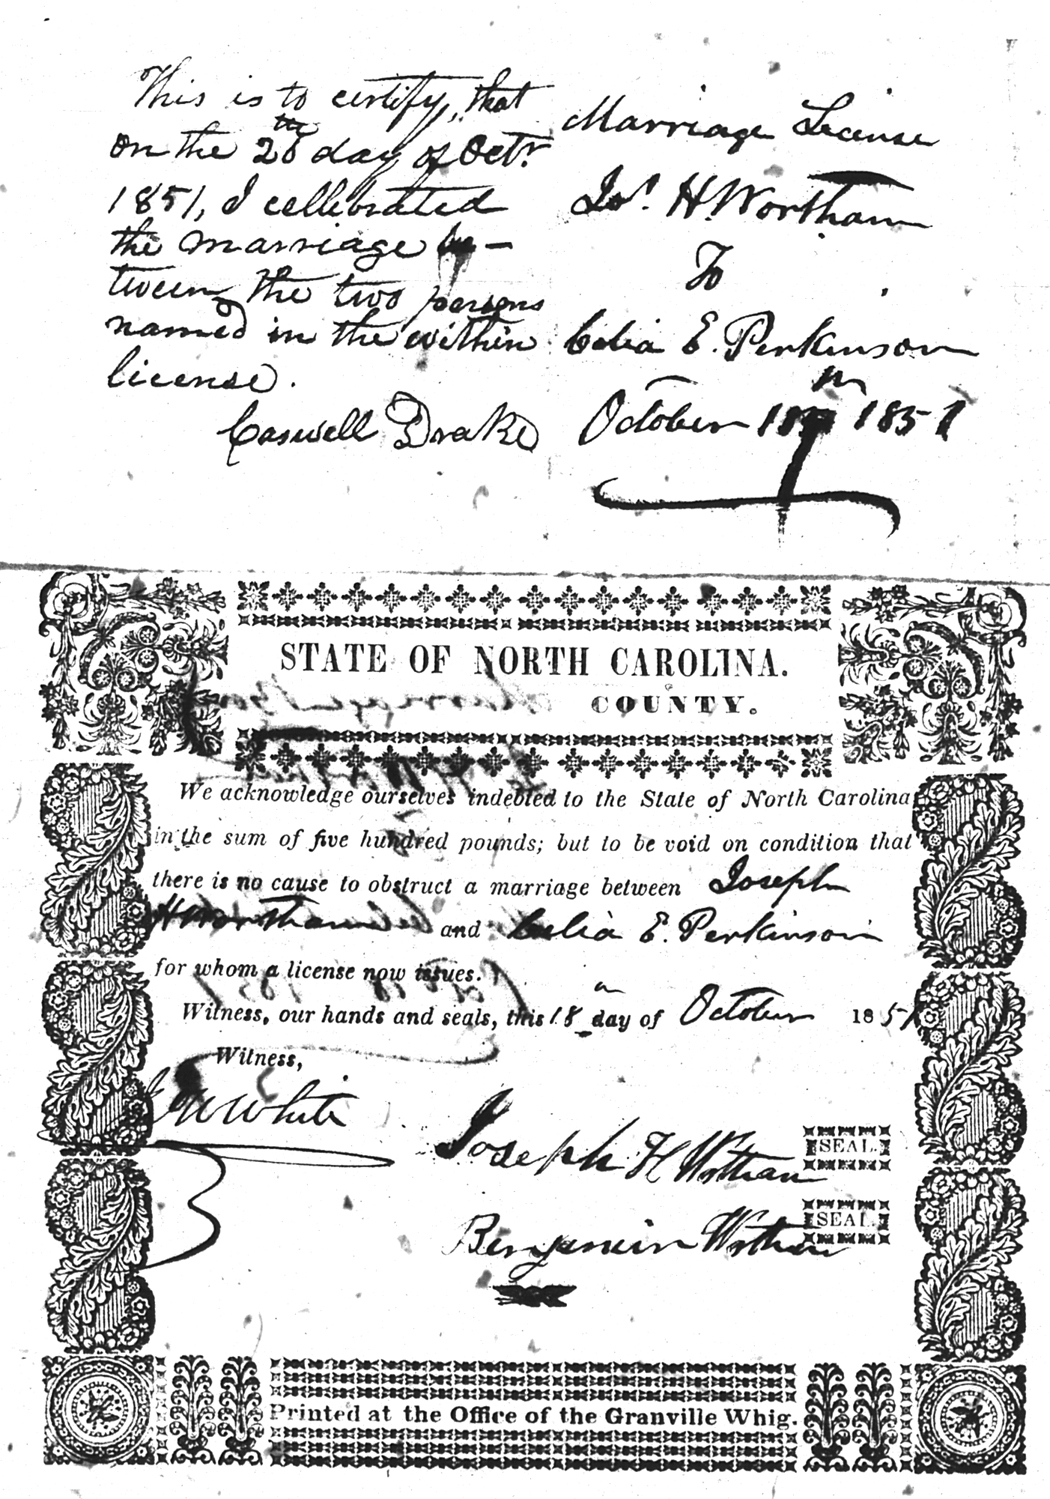 This is to certify, that
on the 28th day of Octr
1851, I cellebrated
the marriage be-
tween the two persons
named in the within
license.
Caswell Drake
Marriage License
Jos. H. Wortham
To
Celia E. Perkinson
October 18 1851
STATE OF NORTH CAROLINA.
COUNTY.
We acknowledge ourselves indebted to the State of North Carolina
in the sum of five hundred pounds; but to be void on condition that
there is no cause to obstruct a marriage between Joseph
H Wortham and Celia E. Perkinson
for whom a license now issues.
Witness, our hands and seals, this 18 day of October 1851
Witness,
W White
Joseph H Wortham SEAL.
Benjamin Wortham SEAL.
Printed at the Office of the Granville Whig.